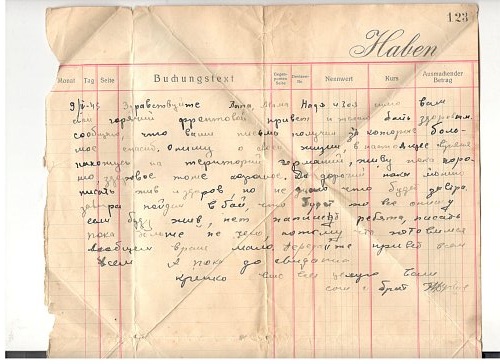 123
Haben
Monat Tag Seite Buchungstext Gegenposten Seite Nennwert Kurs Ausmachender Betrag
Здравствуйте Папа, Мама Надя и Зоя шлю вам
свой горячий фронтовой привет и желаю быть здоровым.
сообщаю, что ваши письма получил за которые боль-
шое спасибо, опишу о своей жизни в настоящее время
нахожусь на территории германии, живу пока хоро-
шо здоровье тоже хорошее. Да дорогие пока можно
писать жив и здоров но не знаю что будет завтра.
завтра пойдем в бой, что будет то все опишу
если буду жив, нет напишут ребята, писать
пока больше не чего потому что готовимся
вообщем время мало, передайте привет всем
всем я пока до свидания
крепко вас всех целую Ваш
сын и брат